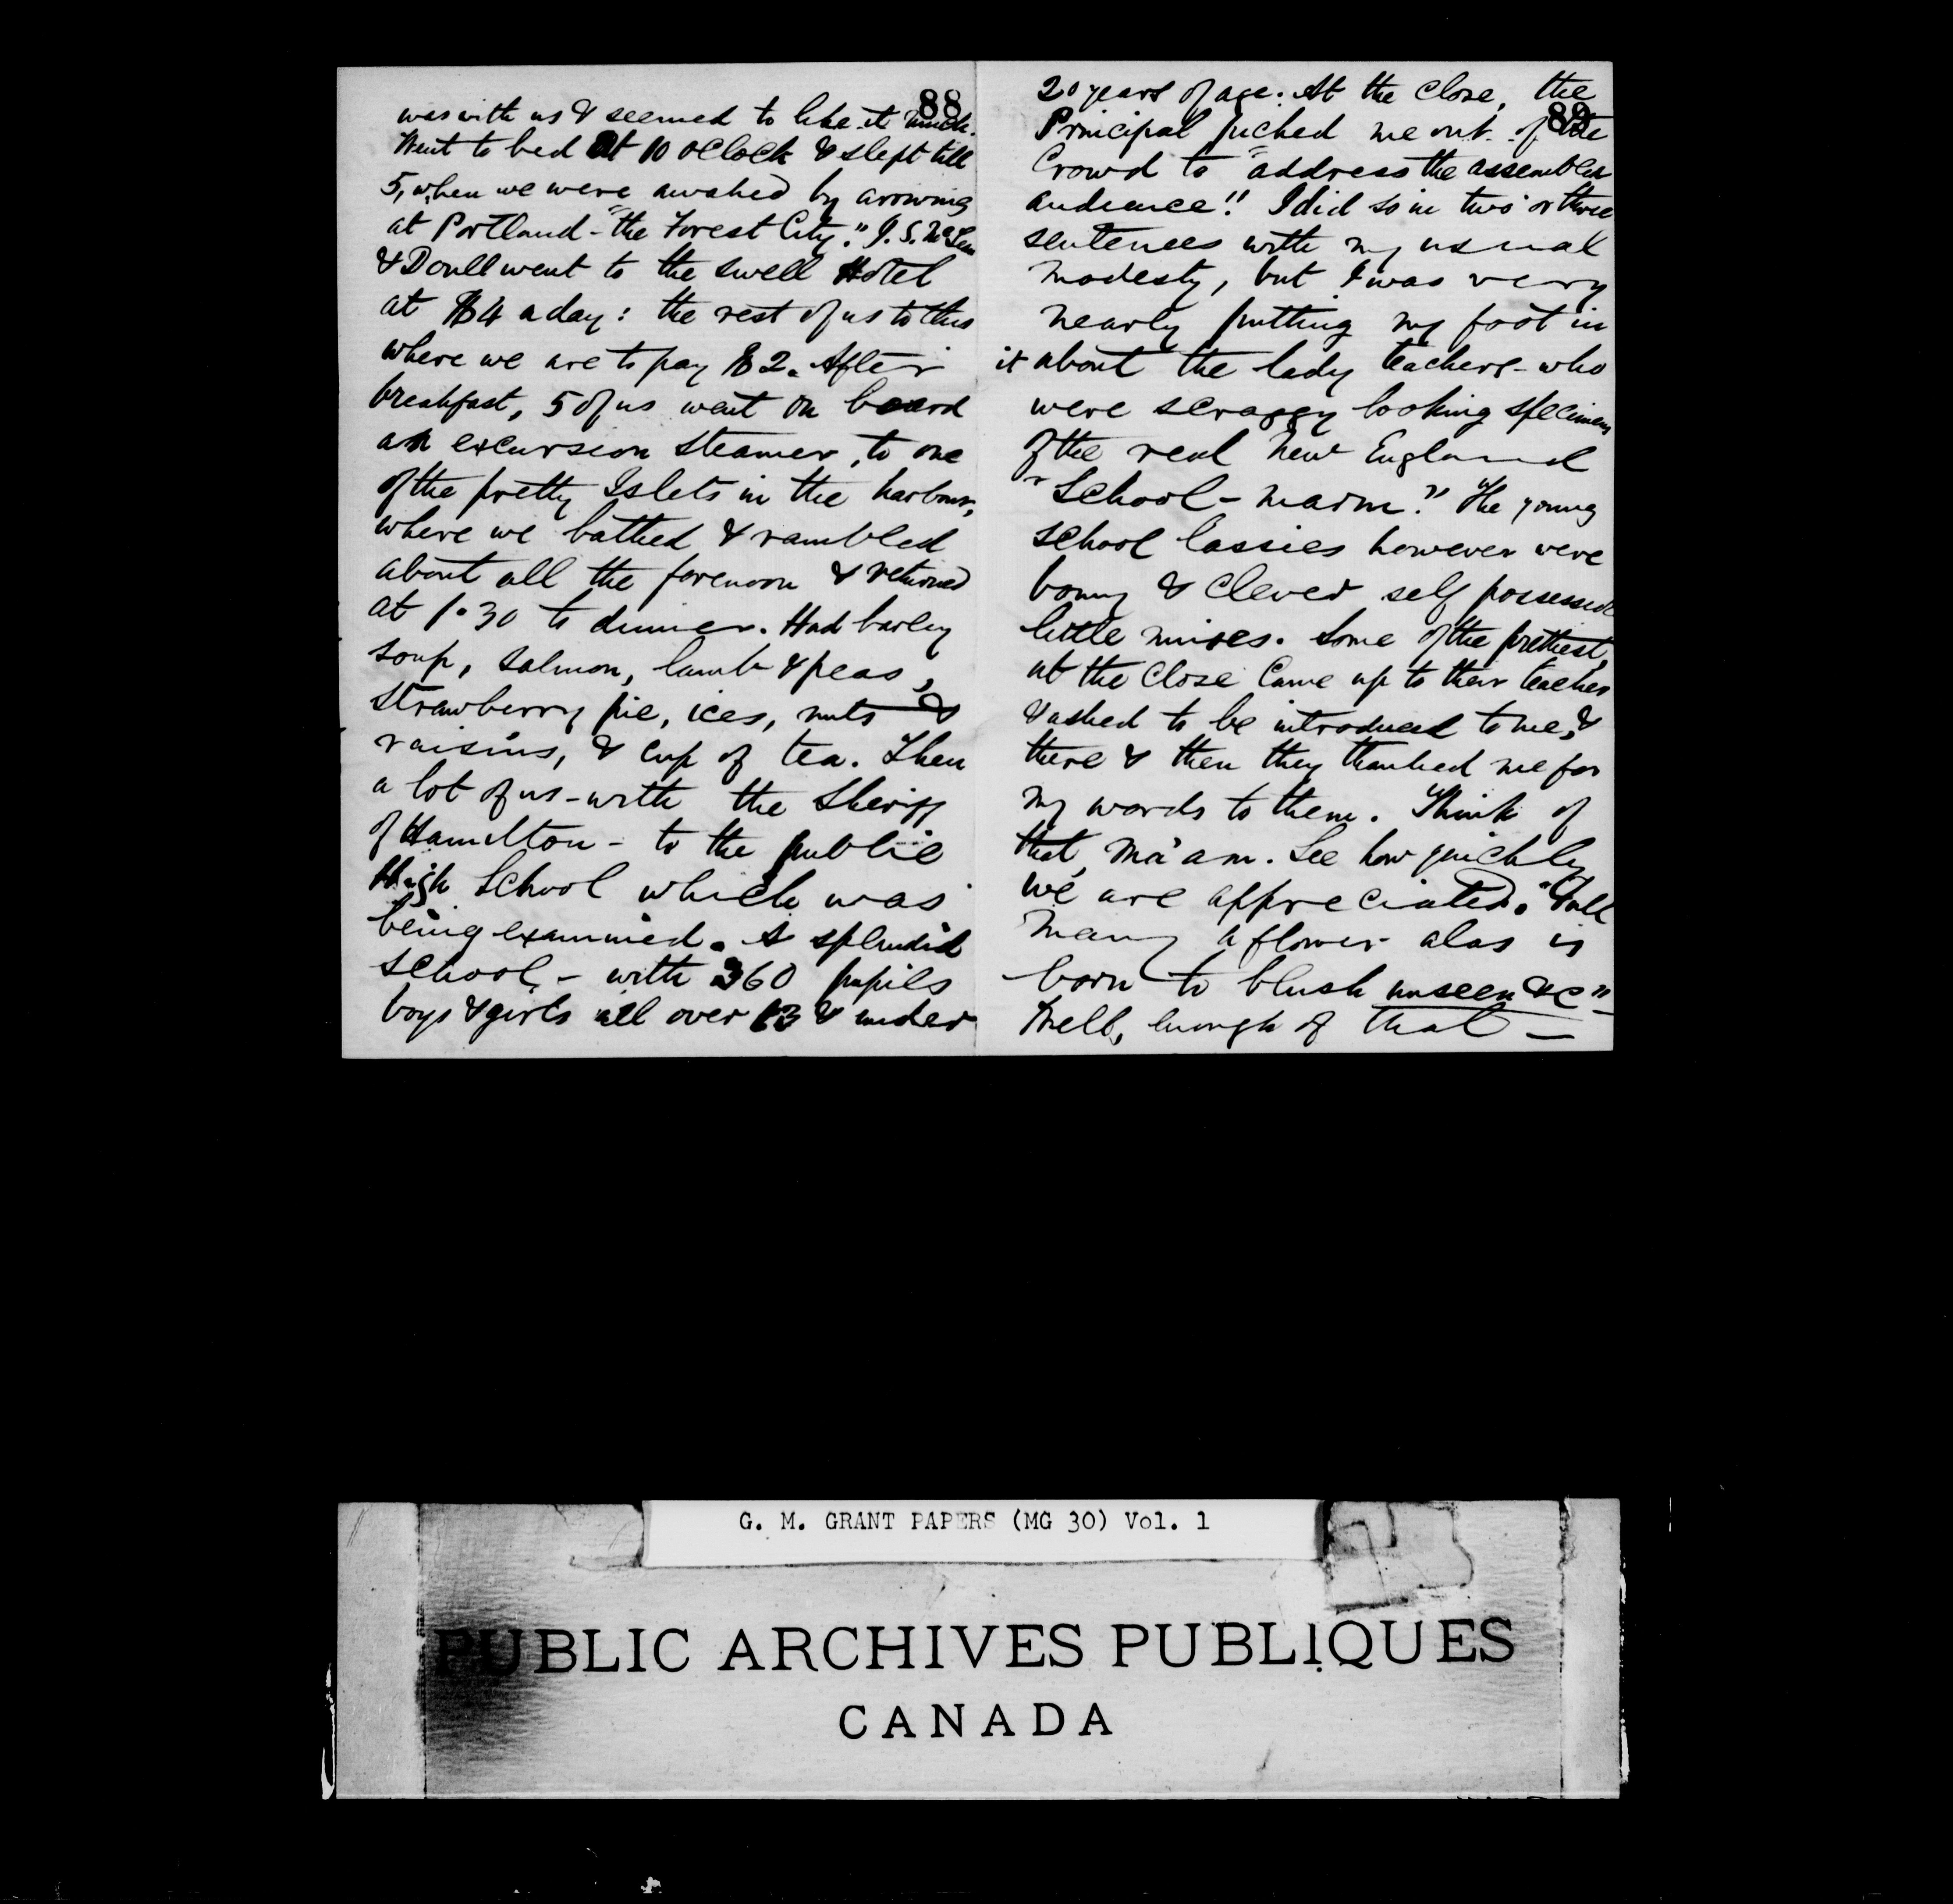 88
was with us & seemed to like it much.
Went to bed at 10 oClock & slept till
5, when we were awaked by arriving
at Portland - "the Forest City." J. S. McLean
& Doull went to the swell Hotel
at $4 a day: the rest of us to this
where we are to pay $2. After
breakfast, 5 of us went on board
an excursion steamer, to one
of the pretty Islets in the harbour,
where we bathed & rambled
about all the forenoon & returned
at 1.30 to dinner. Had barley
soup, salmon, lamb & peas,
strawberry pie, ices, nuts &
raisins, & cup of tea. Then
a lot of us - with the Sheriff
of Hamilton - to the public
High School which was
being examined. A splendid
school, - with 360 pupils
boys & girls all over 13 & under
89
20 years of age. At the close, the
Principal picked me out of the
Crowd to "address the assembled
audience!! I did so in two or three
sentences with my usual
modesty, but I was very
nearly putting my foot in
it about the lady teachers - who
were scraggy looking specimens
of the real New England
"School-marm." The young
school lassies however were
bonny & clever self possessed
little misses. Some of the prettiest,
at the close came up to their teacher
& asked to be introduced to me, &
there & then they thanked me for
my words to them. Think of
that, ma'am. See how quickly
we are appreciated. "Full
many a flower alas is
born to blush unseen &c"
Well, enough of that —
G. M. GRANT PAPERS (MG 30) Vol. 1
PUBLIC ARCHIVES PUBLIQUES
CANADA